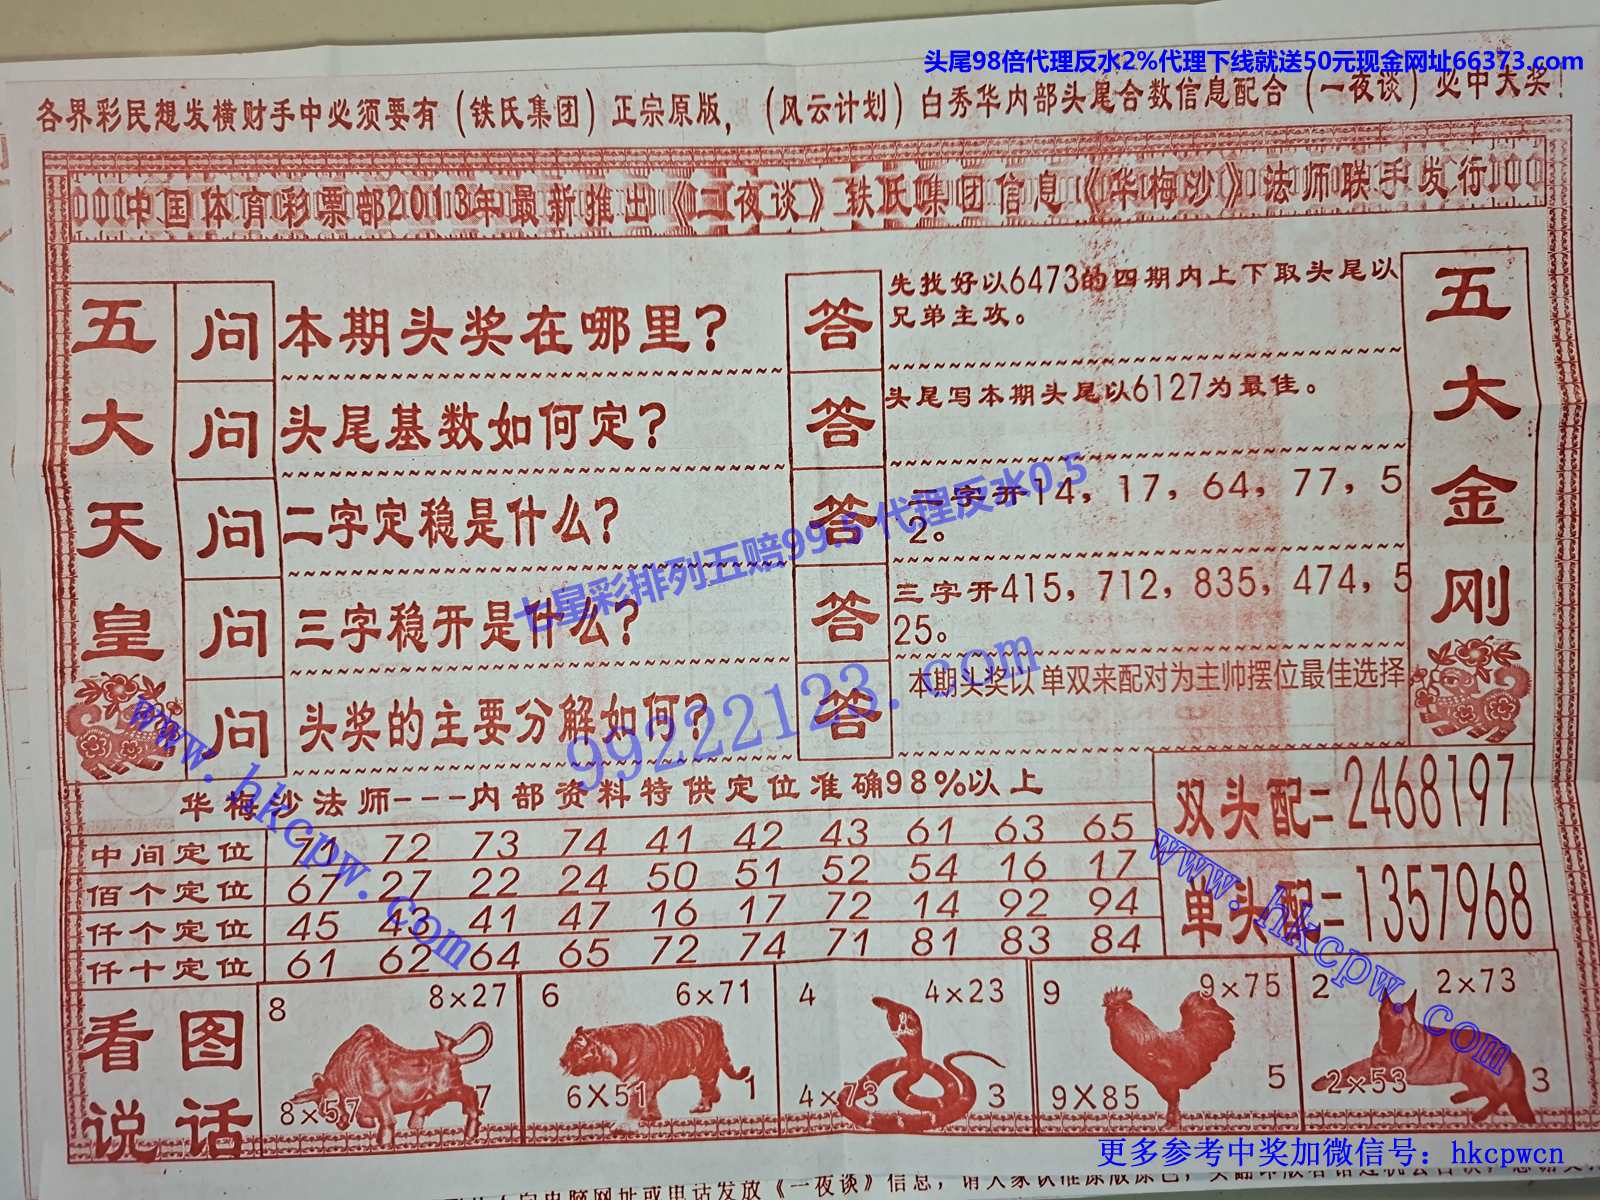 头尾98倍代理反水2%代理下线就送50元现金网址66373.com
各界彩民想发横财手中必须要有（铁氏集团）正宗原版，（风云计划）白秀华内部头尾合数信息配合（一夜谈）必中大奖！
中国体育彩票部2013年最新推出《一夜谈》铁氏集团信息《华梅沙》法师联手发行
五大天皇
问 本期头奖在哪里？
答 先找好以6473的四期内上下取头尾以
兄弟主攻。
问 头尾基数如何定？
答 头尾写本期头尾以6127为最佳。
问 二字定稳是什么？
答 二字开14，17，64，77，5
2。
问 三字稳开是什么？
答 三字开415，712，835，474，5
25。
问 头奖的主要分解如何？
答 本期头奖以单双来配对为主帅摆位最佳选择
五大金刚
七星彩排列五赔99.5 代理反水0.5
99222123.com
www.hkcpw.com
华梅沙法师---内部资料特供定位准确98%以上
中间定位 71 72 73 74 41 42 43 61 63 65
佰个定位 67 27 22 24 50 51 52 54 16 17
仟个定位 45 43 41 47 16 17 72 14 92 94
仟十定位 61 62 64 65 72 74 71 81 83 84
双头配=2468197
单头配=1357968
www.hkcpw.com
看图
说话
8 8×27
8×57 7
6 6×71
6×51 1
4 4×23
4×73 3
9 9×75
9×85 5
2 2×73
2×53 3
更多参考中奖加微信号：hkcpwcn